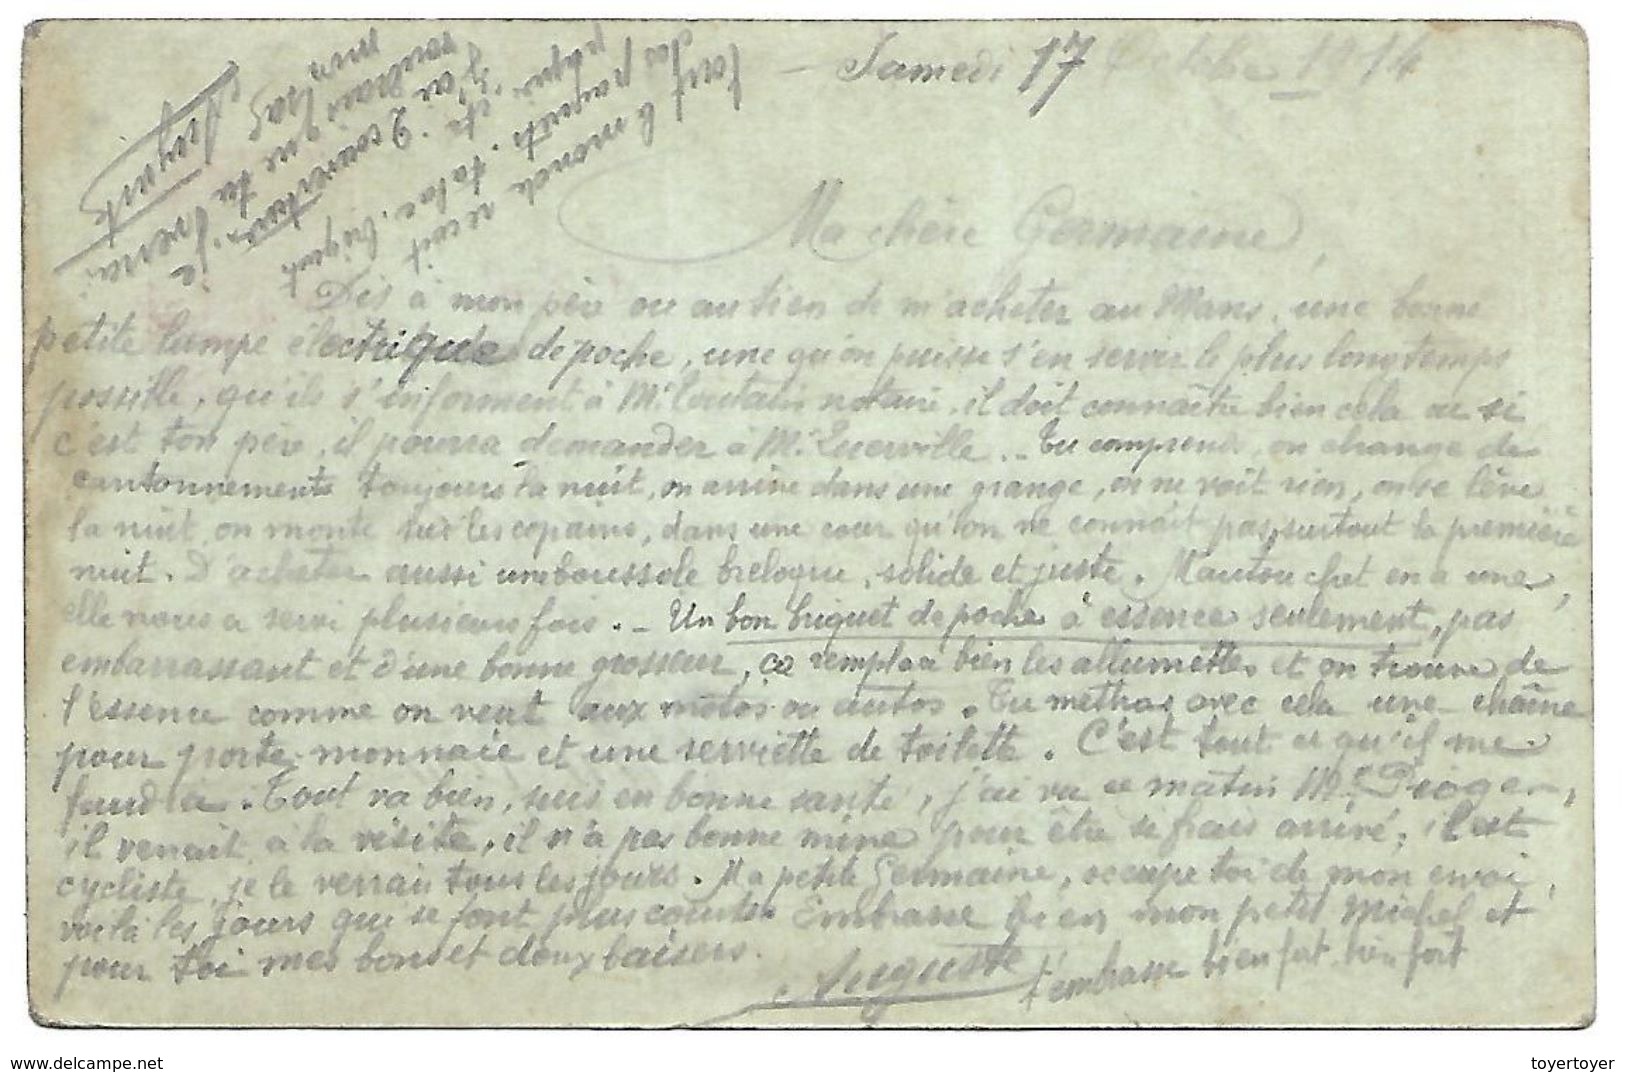 Samedi 17 Octobre 1914
Ma chère Germaine,
Dis à mon père ou au tien de m'acheter au Mans, une bonne
petite lampe électrique de poche, une qu'on puisse s'en servir le plus longtemps
possible, qu'ils s'informent à Mr Coutain notaire, il doit connaître bien cela ou si
c'est ton père, il pourra demander à Mr Querville. - Tu comprends, on change de
cantonnements toujours la nuit, on arrive dans une grange, on ne voit rien, on se lève
la nuit, on monte sur les copains, dans une cour qu'on ne connaît pas, surtout la première
nuit. D'acheter aussi une boussole breloque, solide et juste. Mautouchet en a une,
elle nous a servi plusieurs fois. - Un bon briquet de poche à essence seulement, pas
embarrassant et d'une bonne grosseur, ça remplace bien les allumettes et on trouve de
l'essence comme on veut aux motos ou autos. Tu mettras avec cela une chaîne
pour porte-monnaie et une serviette de toilette. C'est tout ce qu'il me
faud a. Tout va bien, suis en bonne santé, j'ai vu ce matin Mr Dioger,
il venait à la visite, il n'a pas bonne mine pour être si frais arrivé, il est
cycliste, je le verrai tous les jours. Ma petite Germaine, occupe toi de mon envoi,
voilà les jours qui se font plus courts. Embrasse bien mon petit Michel et
pour toi mes bons et doux baisers.
Auguste t'embrasse bien fort bien fort
Tout le monde reçoit
des paquets. tabac. briquets
pipe. etc. 2 couvertures.
J'ai
voudrais que tu
mes
je
Auguste
toyertoyer
www.delcampe.net